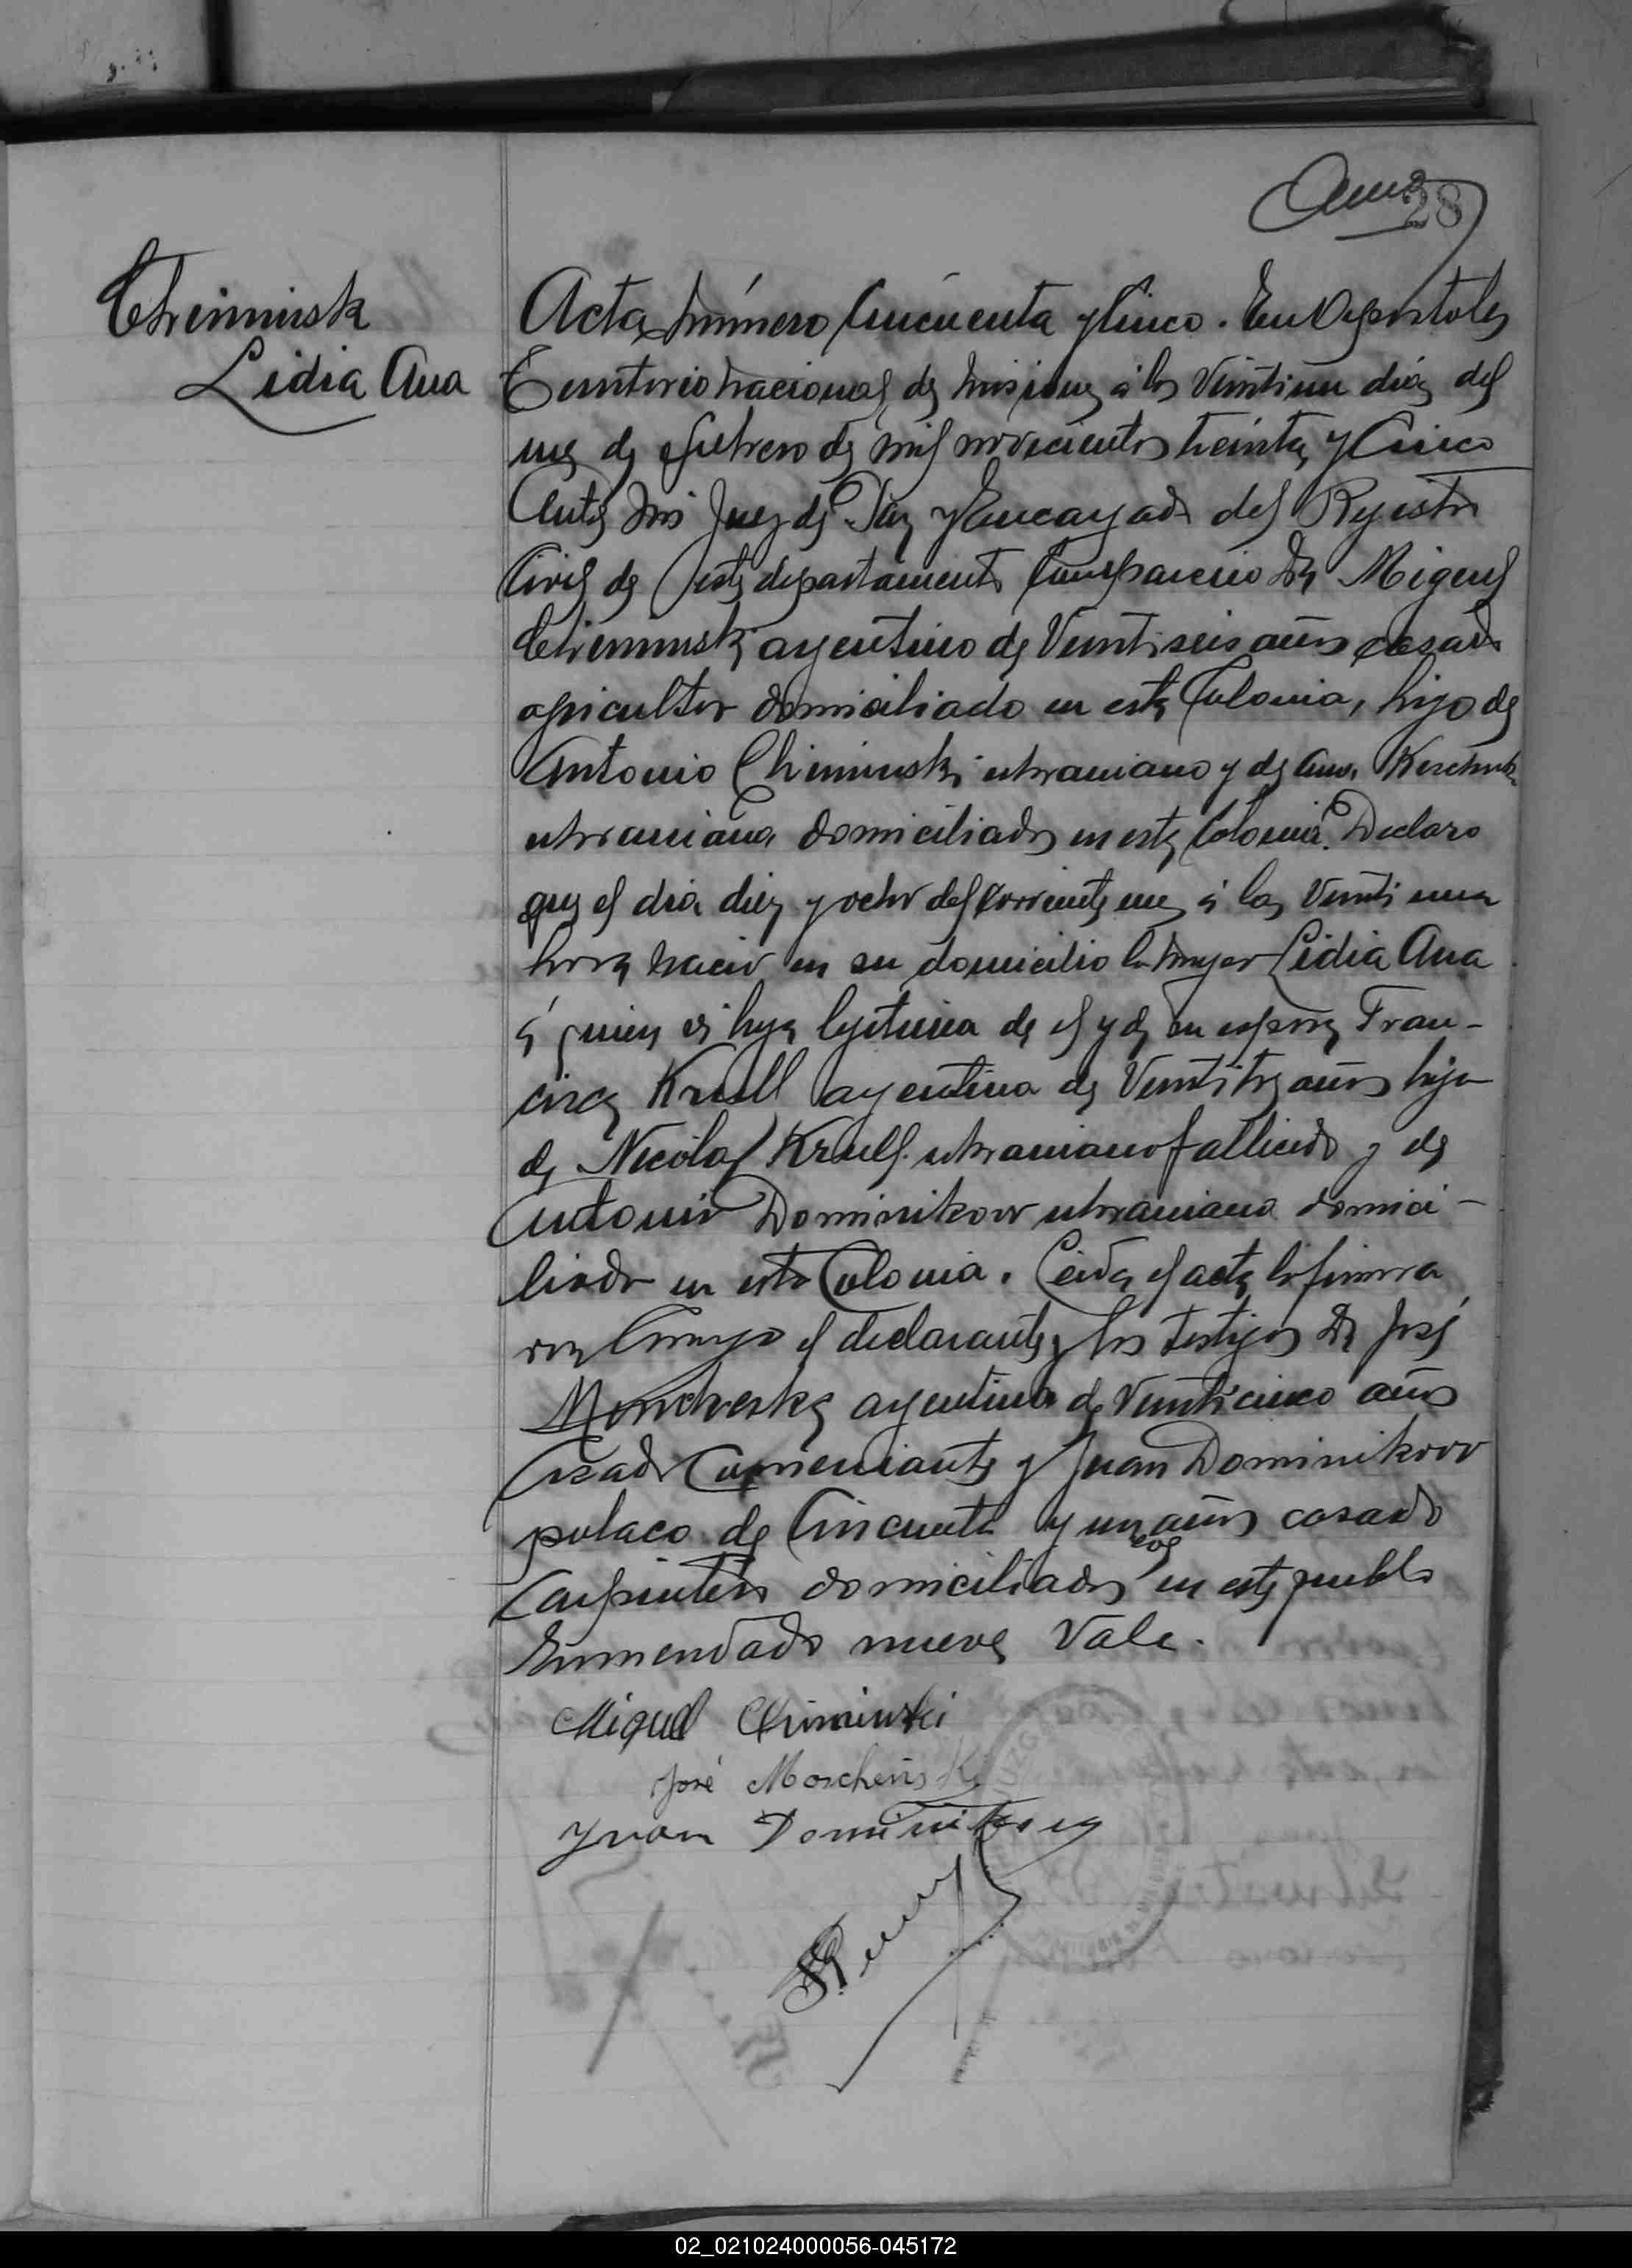 28
Chiminsk
Lidia Ana
Acta número Cincuenta y Cinco. En Apostoles
Territorio Nacional de Misiones á los Veintiun dias del
mes de febrero de mil novecientos treinta y Cinco
Ante mi Juez de Paz y Encargado del Registro
Civil de este departamento Comparecio Dn Miguel
Chiminski argentino de Veintiseis años casado
agricultor domiciliado en esta Colonia, hijo de
Antonio Chiminski ukraniano y de Ana
ukraniana domiciliados en esta Colonia. Declaro
que el dia diez y ocho del corriente mes á las Veinti una
horas nacio en su domicilio la mujer Lidia Ana
á quien es hija legitima de el y de su esposa Fran-
cisca Krull argentina de Veintitres años hija
de Nicolas Krull ukraniano fallecido y de
Antonia Dominikow ukraniana domici-
liada en esta Colonia. Leida el acta la firma
ron Conmigo el declarante y los testigos Dn José
argentino de Veinticinco años
Casado Comerciante y Juan Dominikow
polaco de Cincuenta y un años casado
Carpintero domiciliados en este pueblo
Enmendado nueve Vale.
Miguel Chiminski
José Moscheñski
Juan Dominikow
02_021024000056-045172